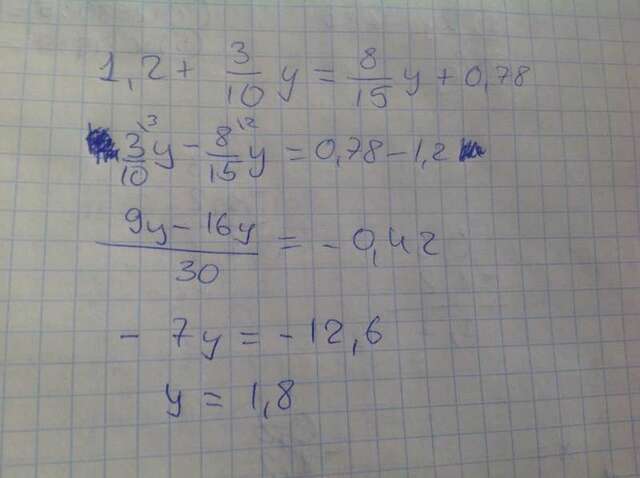 1,2 + 3/10 y = 8/15 y + 0,78
3/10 \3 y - 8/15 \2 y = 0,78 - 1,2
9y - 16y / 30 = - 0,42
- 7y = - 12,6
y = 1,8